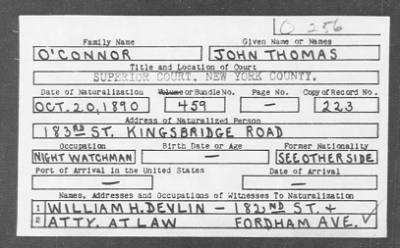 O 256
Family Name Given Name or Names
O'CONNOR JOHN THOMAS
Title and Location of Court
SUPERIOR COURT, NEW YORK COUNTY.
Date of Naturalization Volume or Bundle No. Page No. Copy of Record No.
OCT. 20, 1890 459 — 223
Address of Naturalized Person
183RD ST. KINGSBRIDGE ROAD
Occupation Birth Date or Age Former Nationality
NIGHT WATCHMAN — SEE OTHER SIDE
Port of Arrival in the United States Date of Arrival
— —
Names, Addresses and Occupations of Witnesses To Naturalization
1 WILLIAM H. DEVLIN — 182ND ST. &
2 ATTY. AT LAW FORDHAM AVE. ✓